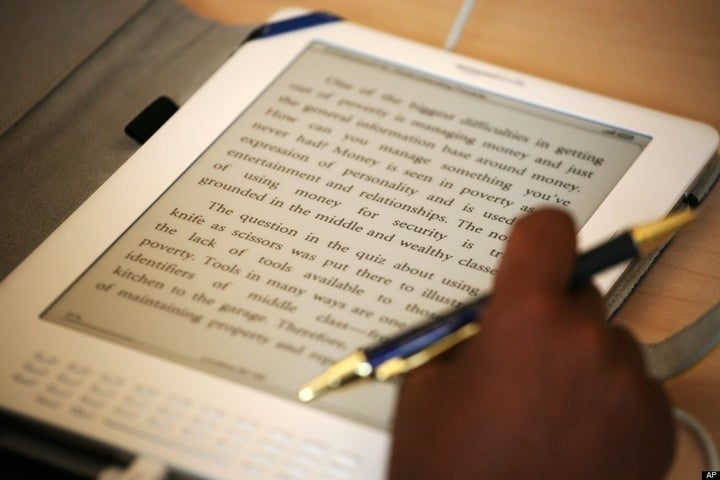 amazonkindle
One of the biggest difficulties in getting
out of poverty is managing money and just
the general information base around money.
How can you manage something you've
never had? Money is seen in poverty as
expression of personality and is used
entertainment and relationships. The
of using money for security is
grounded in the middle and wealthy
The question in the quiz about using
knife as scissors was put there to
the lack of tools available to
poverty. Tools in many ways are one
identifiers of middle class—
kitchen to the garage. Therefore,
of maintaining property and
AP